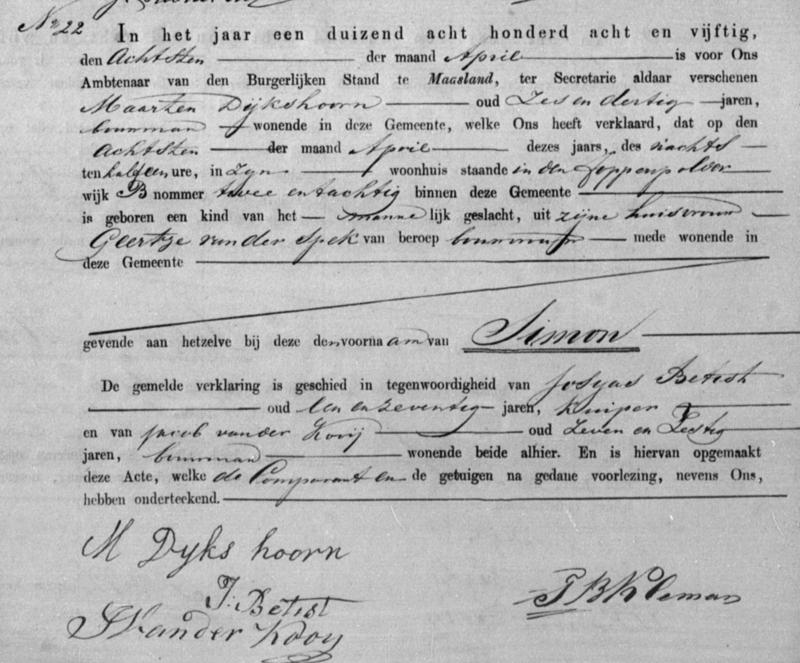 No 22 In het jaar een duizend acht honderd acht en vijftig,
den Achtsten der maand April is voor Ons
Ambtenaar van den Burgerlijken Stand te Maasland, ter Secretarie aldaar verschenen
Maarten Dijkshoorn oud Zes en dertig jaren,
bouwman wonende in deze Gemeente, welke Ons heeft verklaard, dat op den
Achtsten der maand April dezes jaars, des nachts
ten half een ure, in Zyn woonhuis staande in den Foppenpolder
wijk B nommer twee en tachtig binnen deze Gemeente
is geboren een kind van het mannelijk geslacht, uit zijne huisvrouw
Geertje van der Spek van beroep bouwvrouw mede wonende in
deze Gemeente
gevende aan hetzelve bij deze den voornaam van Simon
De gemelde verklaring is geschied in tegenwoordigheid van Josyas Betist
oud een en zeventig jaren, kuiper
en van Jacob van der Kooij oud Zeven en Zestig
jaren, bouwman wonende beide alhier. En is hiervan opgemaakt
deze Acte, welke de Comparant en de getuigen na gedane voorlezing, nevens Ons,
hebben onderteekend.
M Dyks hoorn
J: Betist
J van der Kooy